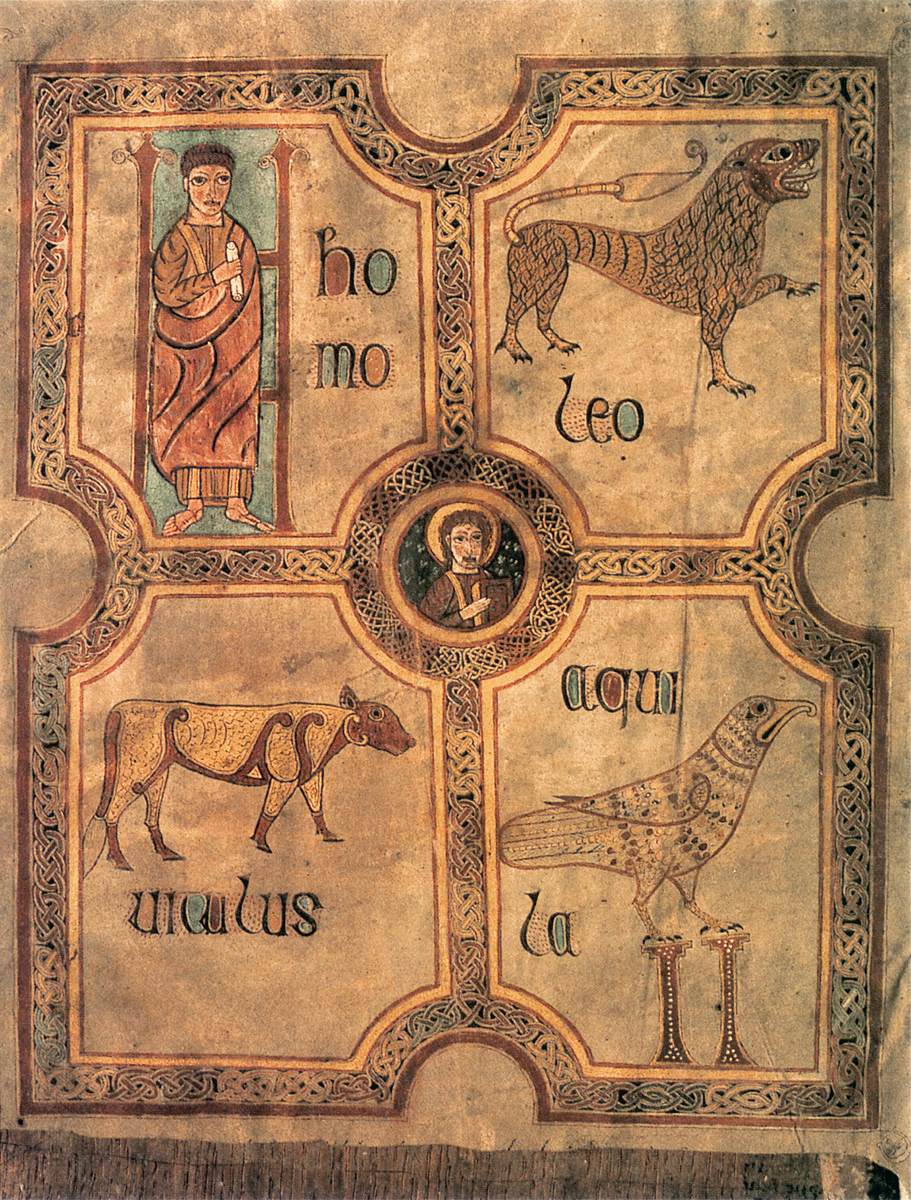 ho
mo
leo
uitulus
aqui
la